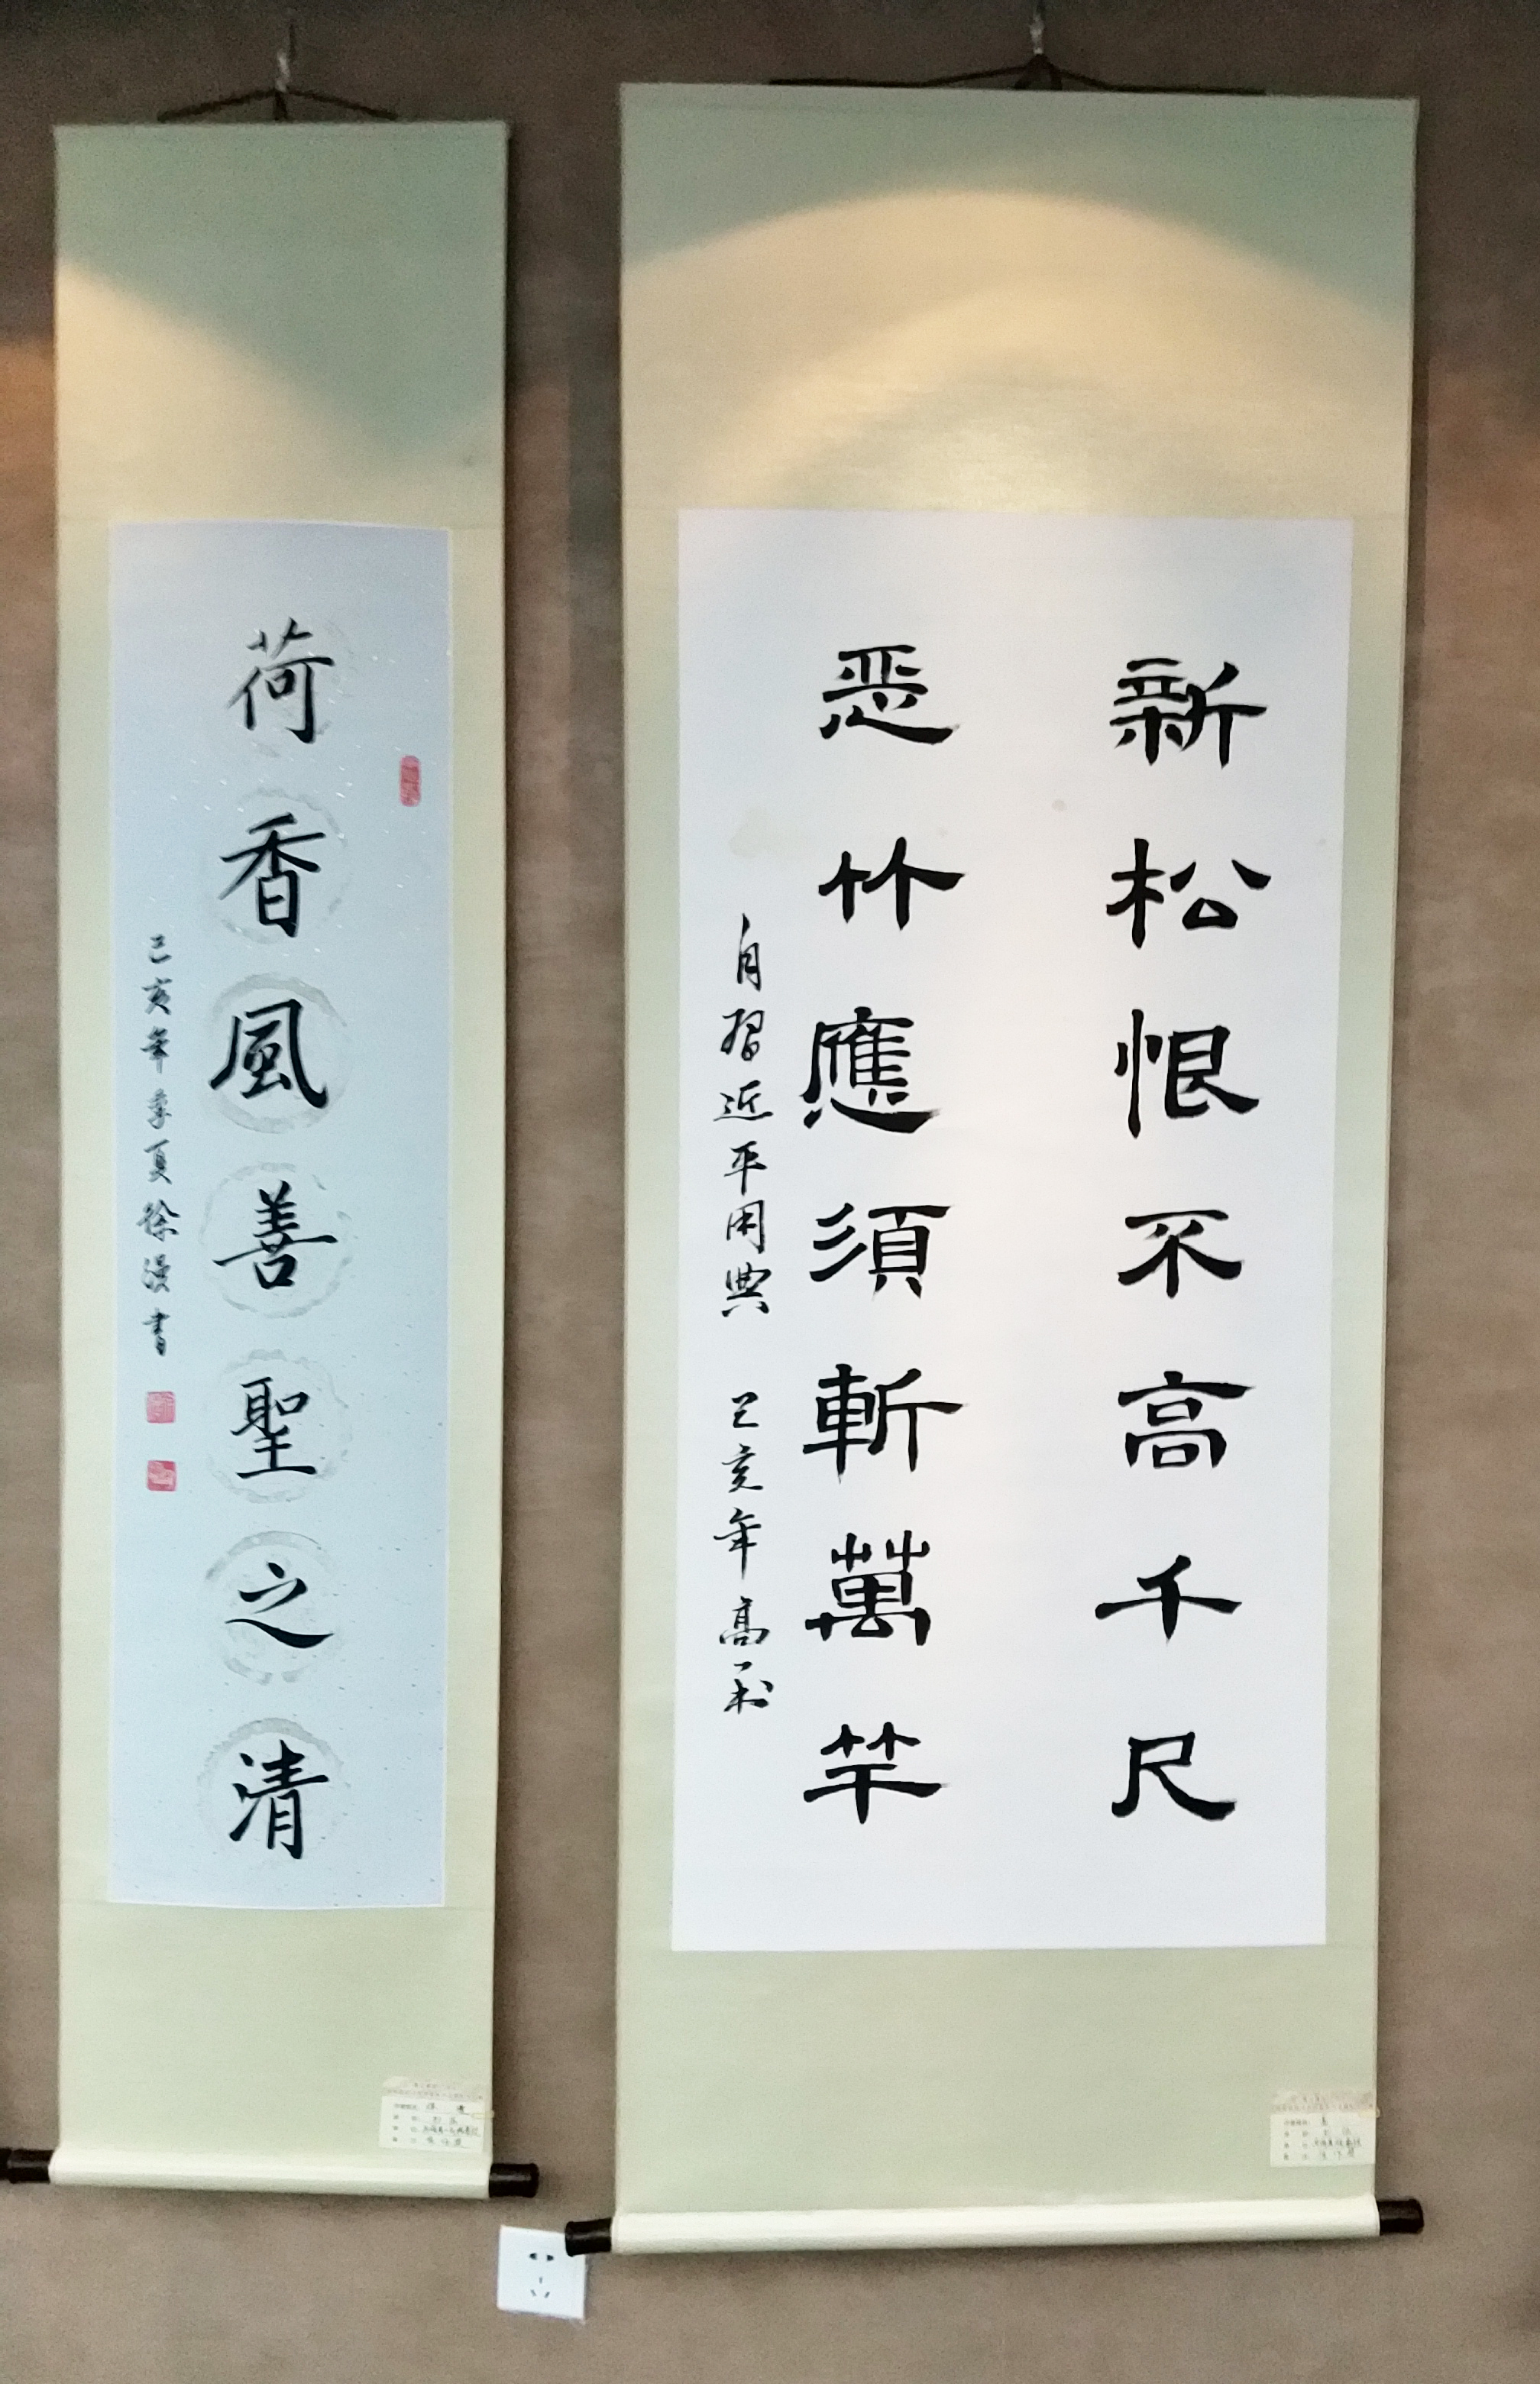 新松恨不高千尺
恶竹應須斬萬竿
自習近平用典 己亥年高
荷香風善聖之清
己亥年季夏徐漫書